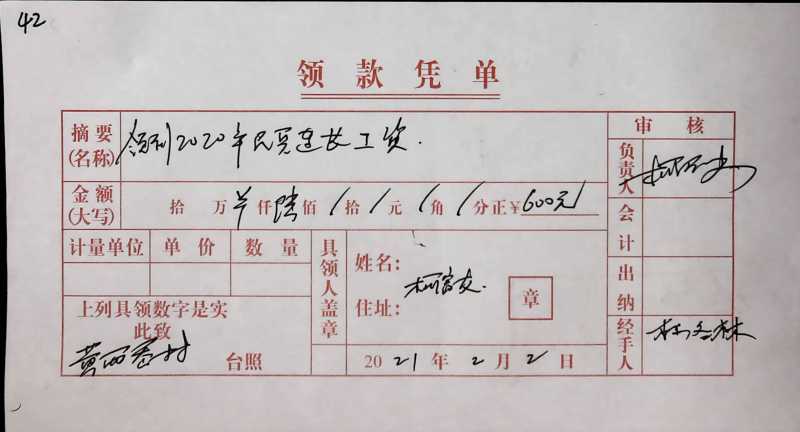 42
领款凭单
摘要(名称) 领到2020年民兵连长工资.
金额(大写) 拾 万 仟陆佰/拾/元/角/分正¥600元/
计量单位 单价 数量
上列具领数字是实
此致
黄西 村 台照
具领人盖章
姓名:
住址:
柯富友.
章
2021年2月2日
审核
负责人
会计
出纳
经手人 林